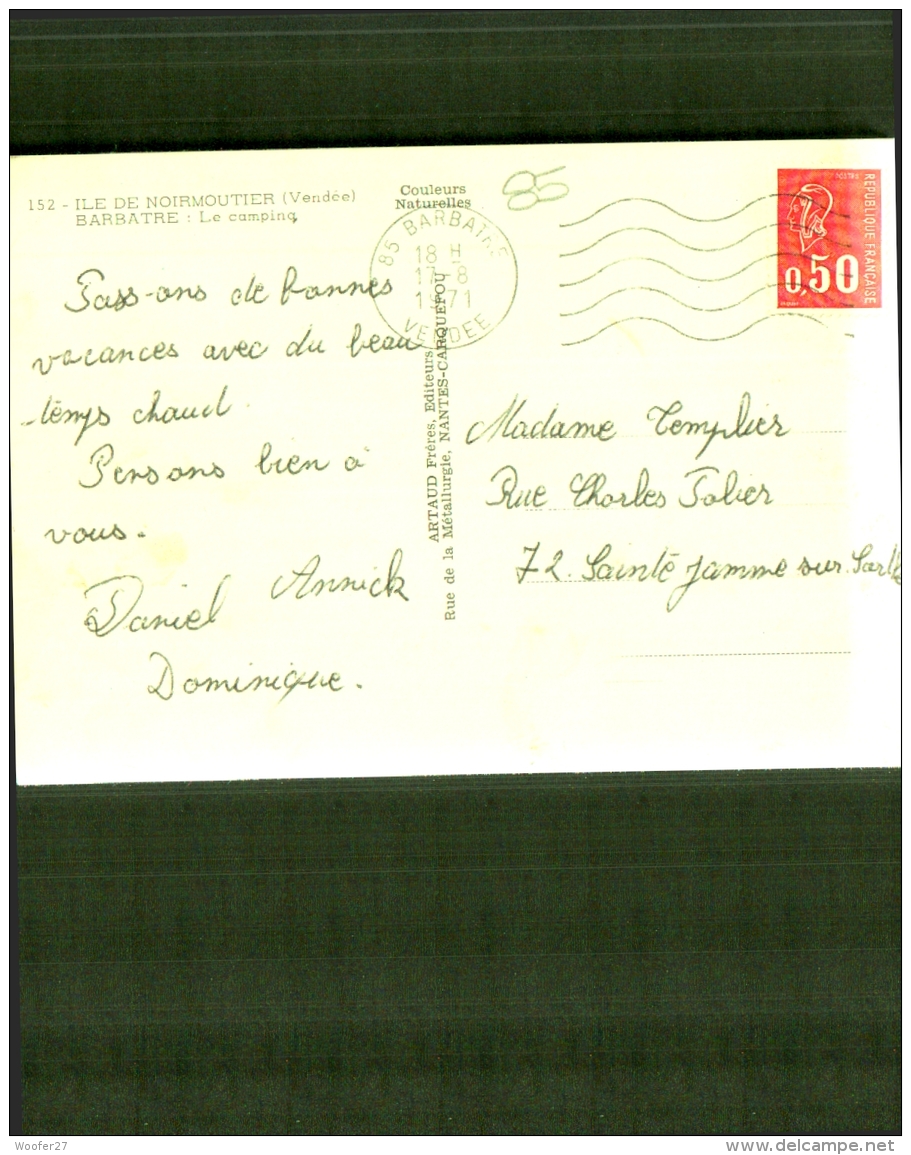 152 - ILE DE NOIRMOUTIER (Vendée)
BARBATRE : Le camping
Couleurs
Naturelles
85
85 BARBATRE
18 H
17-8
1971
VENDEE
POSTES
REPUBLIQUE FRANÇAISE
0,50
Pass-ons de bonnes
vacances avec du beau
temps chaud.
Pensons bien à
vous.
Annick
Daniel
Dominique.
ARTAUD Frères, Editeurs
Rue de la Métallurgie, NANTES-CARQUEFOU
Madame Templier
Rue Charles
72. Sainte Jamme sur Sarthe
Woofer27
www.delcampe.net